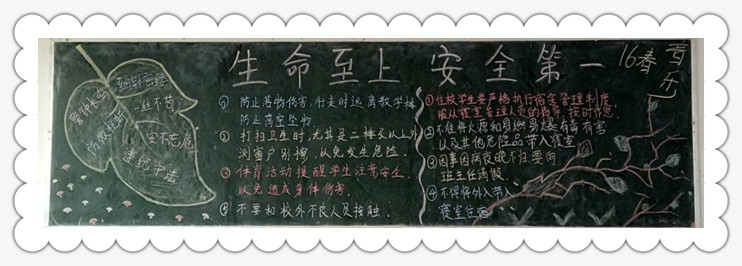 生命至上 安全第一
16春
警钟长鸣
一丝不苟
防微杜渐
安不忘危
遵纪守法
① 防止落物伤害,行走时远离教学楼
防止高空坠物
② 打扫卫生时,尤其是二楼及以上外
测窗户别擦,以免发生危险.
③ 体育活动提醒学生注意安全,
以免造成身体伤害.
④ 不要和校外不良人员接触.
①住校学生要严格执行宿舍管理制度.
服从寝室管理人员的指导,按时作息.
②不准将火源和易燃易爆有毒有害
以及其他危险品带入寝室
③因事因病夜晚不归要向
班主任请假.
④不得将外人带入
寝室住宿